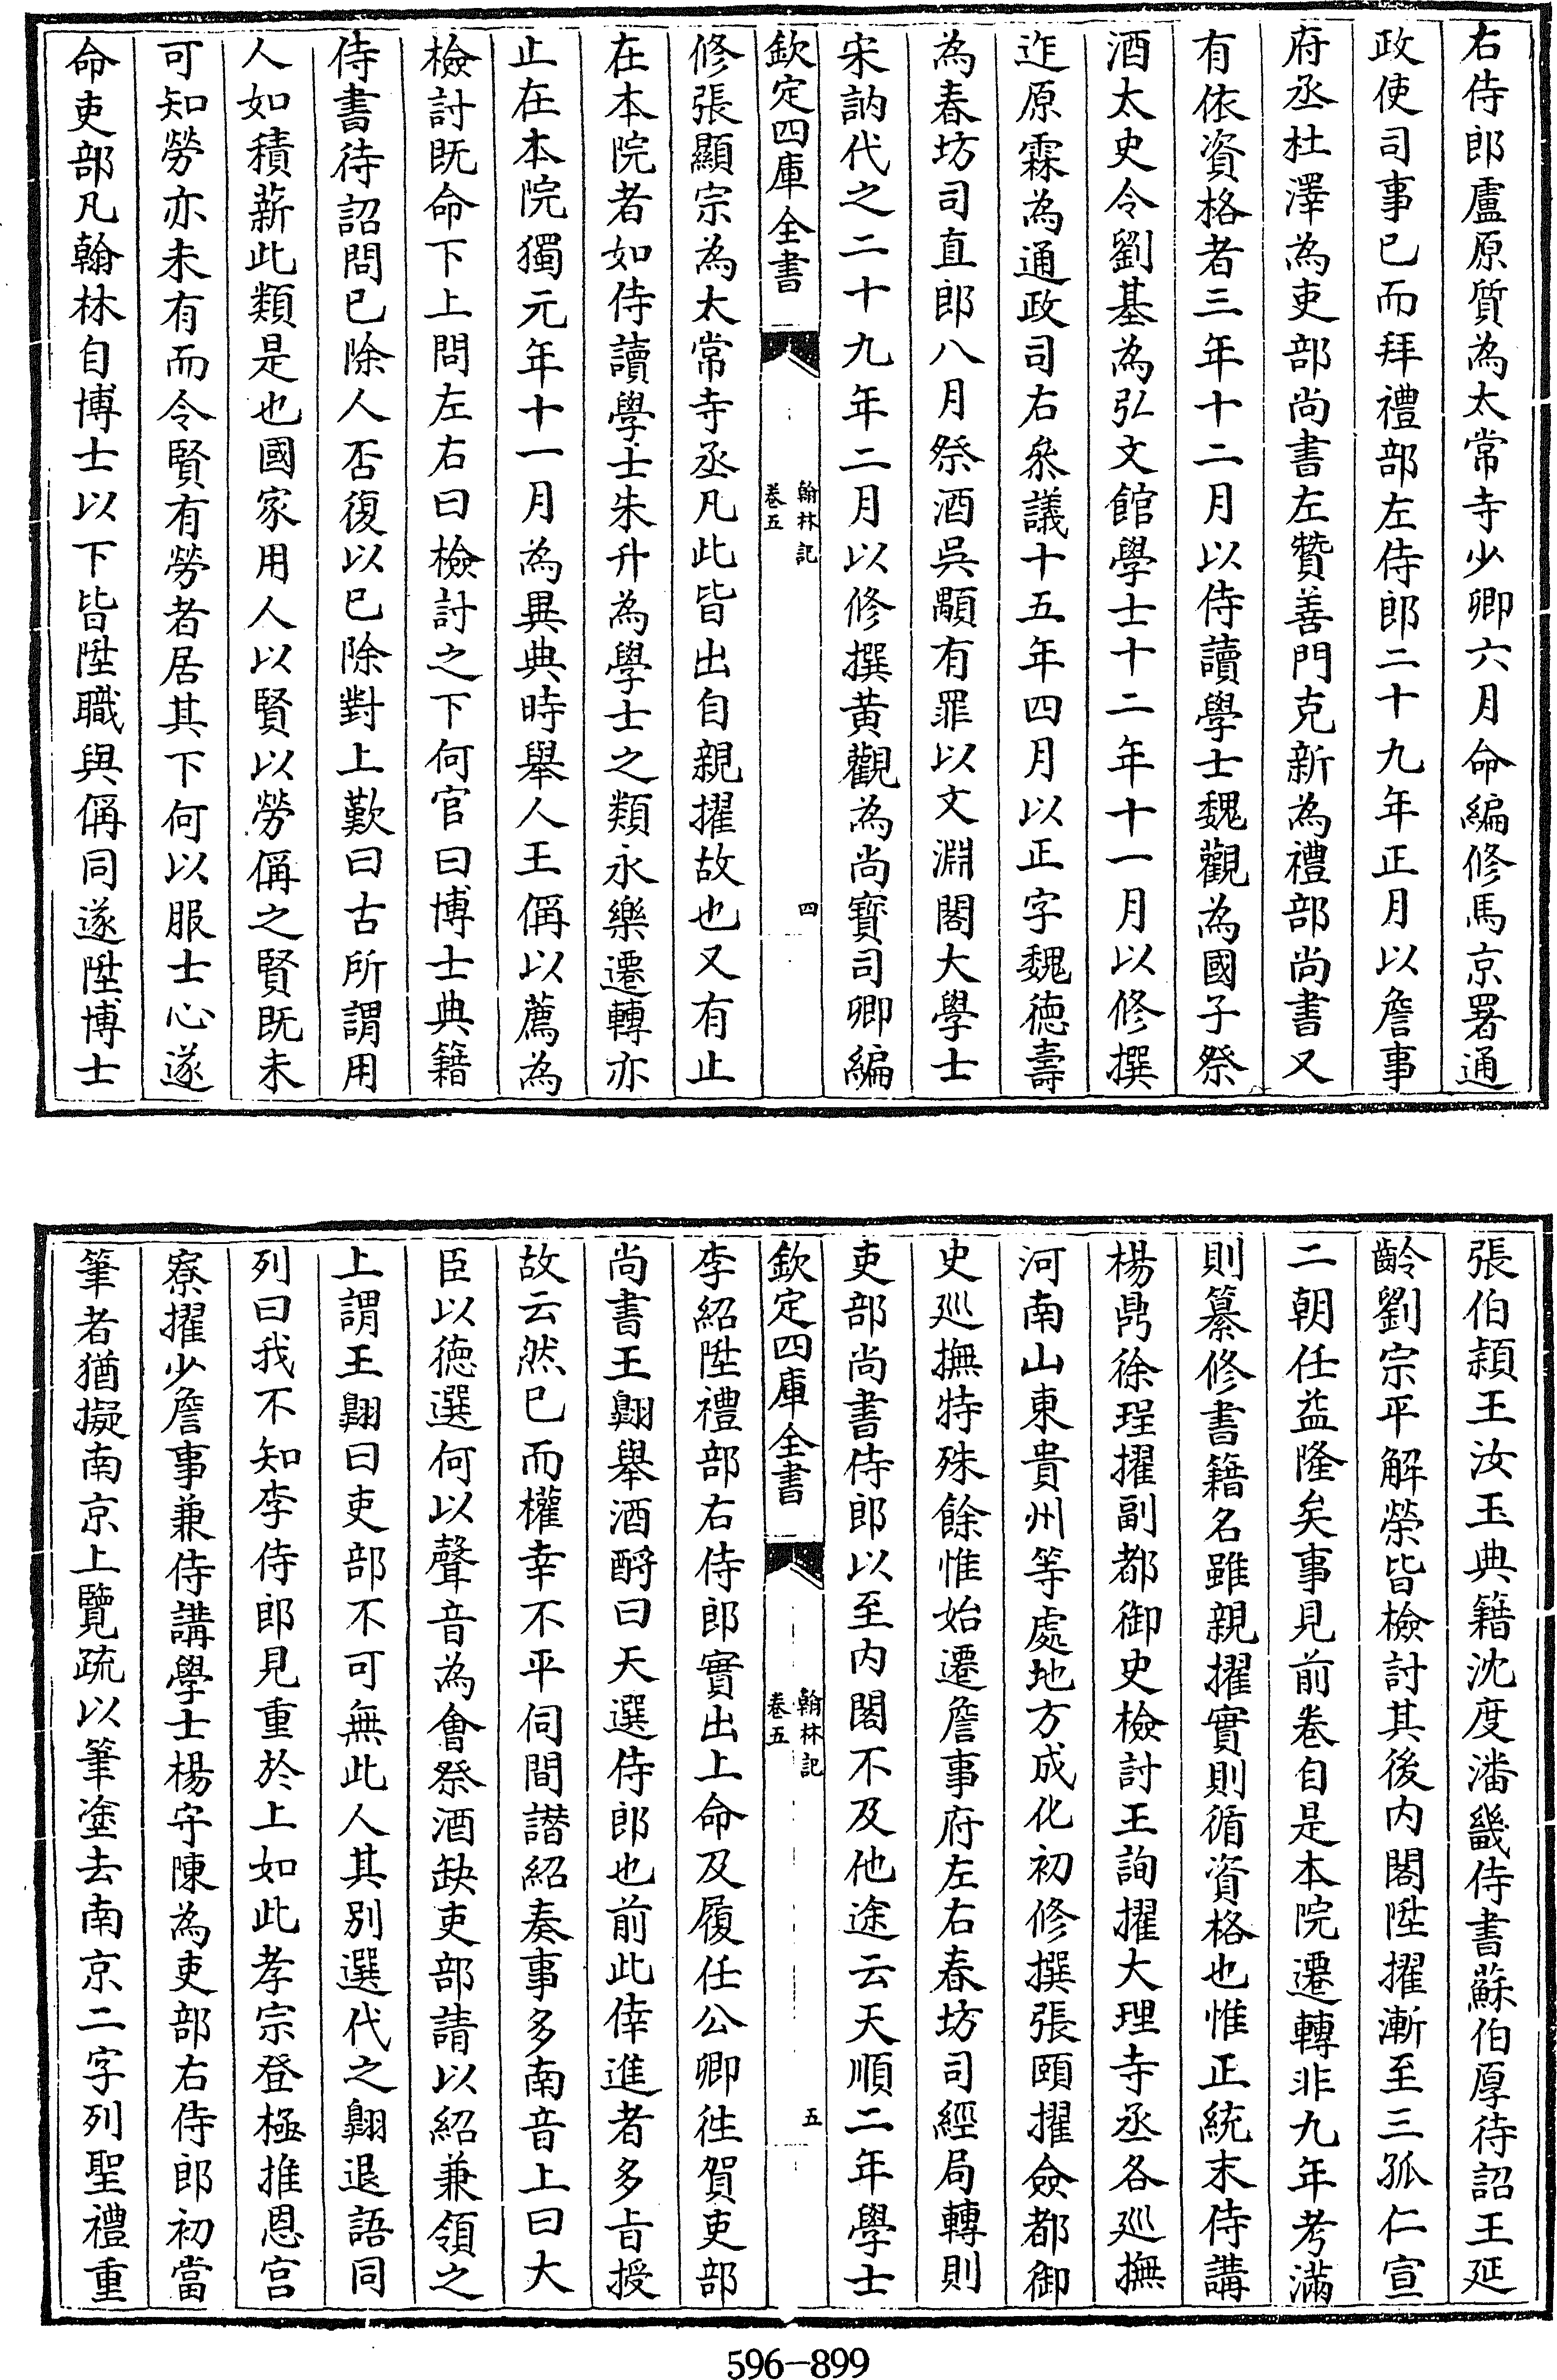 右侍郎盧原質為太常寺少卿六月命編修馬京署通
政使司事已而拜禮部左侍郎二十九年正月以詹事
府丞杜澤為吏部尚書左贊善門克新為禮部尚書又
有依資格者三年十二月以侍讀學士魏觀為國子祭
酒太史令劉基為弘文館學士十二年十一月以修撰
迮原霖為通政司右叅議十五年四月以正字魏德壽
為春坊司直郎八月祭酒吳顒有罪以文淵閣大學士
宋訥代之二十九年二月以修撰黄觀為尚寳司卿編
欽定四庫全書
翰林記
卷五
四
修張顯宗為太常寺丞凡此皆出自親擢故也又有止
在本院者如侍讀學士朱升為學士之類永樂遷轉亦
止在本院獨元年十一月為異典時舉人王偁以薦為
檢討既命下上問左右曰檢討之下何官曰博士典籍
侍書待詔問已除人否復以已除對上歎曰古所謂用
人如積薪此類是也國家用人以賢以勞偁之賢既未
可知勞亦未有而令賢有勞者居其下何以服士心遂
命吏部凡翰林自博士以下皆陞職與偁同遂陞博士
張伯頴王汝玉典籍沈度潘畿侍書蘇伯厚待詔王延
齡劉宗平解榮皆檢討其後内閣陞擢漸至三孤仁宣
二朝任益隆矣事見前卷自是本院遷轉非九年考滿
則纂修書籍名雖親擢實則循資格也惟正統末侍講
楊鼎徐珵擢副都御史檢討王詢擢大理寺丞各巡撫
河南山東貴州等處地方成化初修撰張頤擢僉都御
史巡撫特殊餘惟始遷詹事府左右春坊司經局轉則
吏部尚書侍郎以至内閣不及他途云天順二年學士
欽定四庫全書
翰林記
卷五
五
李紹陞禮部右侍郎實出上命及履任公卿徃賀吏部
尚書王翺舉酒酹曰天選侍郎也前此倖進者多㫖授
故云然已而權幸不平伺間譖紹奏事多南音上曰大
臣以德選何以聲音為會祭酒缺吏部請以紹兼領之
上謂王翺曰吏部不可無此人其别選代之翺退語同
列曰我不知李侍郎見重於上如此孝宗登極推恩宫
寮擢少詹事兼侍講學士楊守陳為吏部右侍郎初當
筆者猶擬南京上覽疏以筆塗去南京二字列聖禮重
596-899